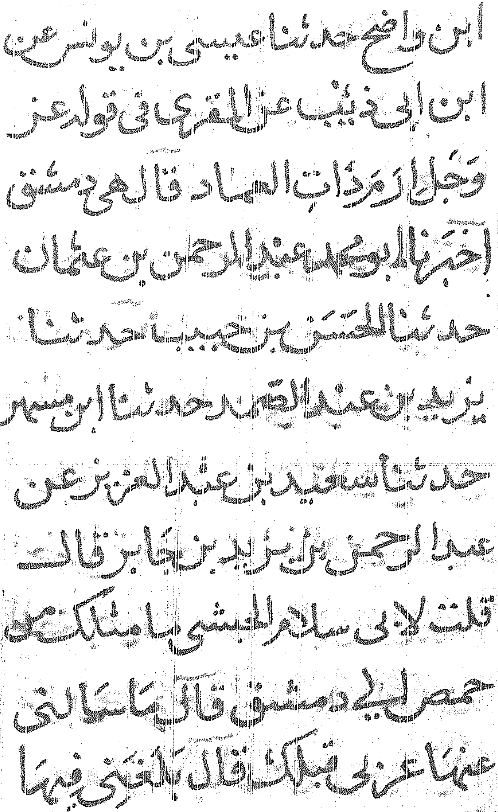 ابن واضح حدثنا عيسى بن يونس عن
ابن ابي ذئب عن المقبري في قوله عز
وجل ارم ذات العماد قال هي دمشق
اخبرنا ابو محمد عبد الرحمن بن عثمان
حدثنا الحسن بن حبيب حدثنا
يزيد بن عبد الصمد حدثنا ابن مسهر
حدثنا سعيد بن عبد العزيز عن
عبد الرحمن بن يزيد بن جابر قال
قلت لابي سلام الحبشي ما نقلك من
حمص الى دمشق قال ما سالني
عنها عربي قبلك قال بلغني فيها